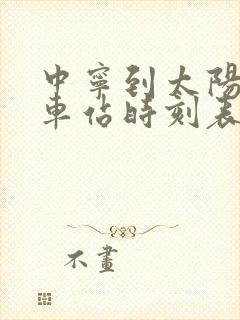 中寧到太陽
車佔時刻表
不畫